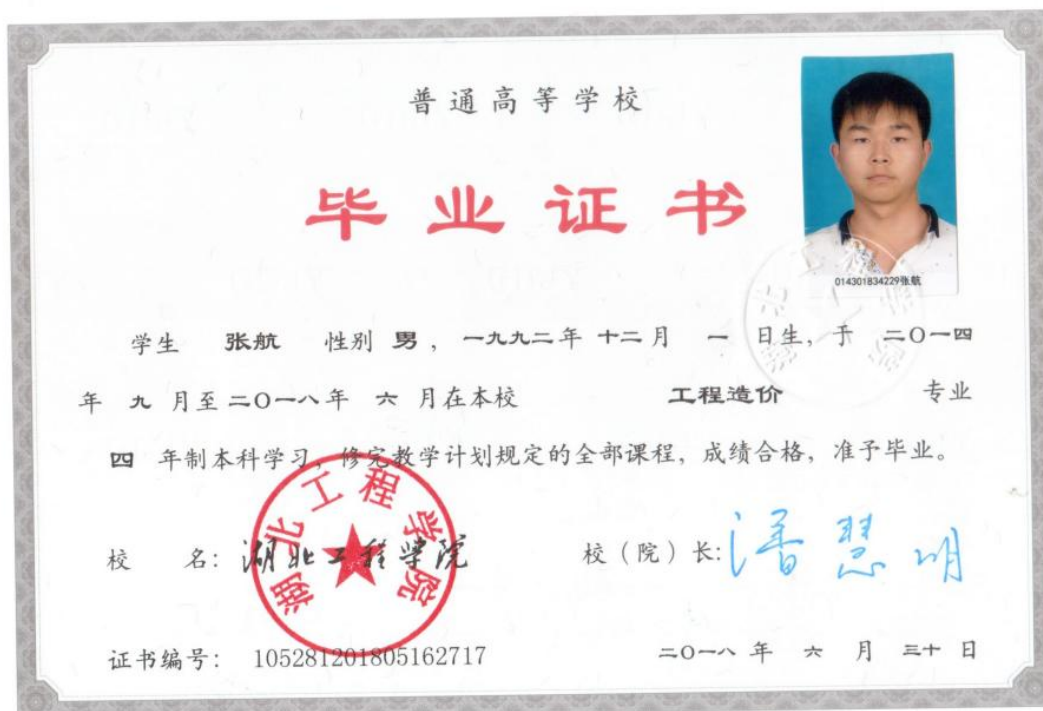 普通高等学校
毕业证书
014301834229张航
学生 张航 性别 男，一九九二年 十二月 一 日生，于 二〇一四
年 九 月至 二〇一八年 六 月在本校 工程造价 专业
四 年制本科学习，修完教学计划规定的全部课程，成绩合格，准予毕业。
湖北工程学院
校 名：湖北工程学院 校（院）长：潘慧明
证书编号： 105281201805162717 二〇一八 年 六 月 三十 日